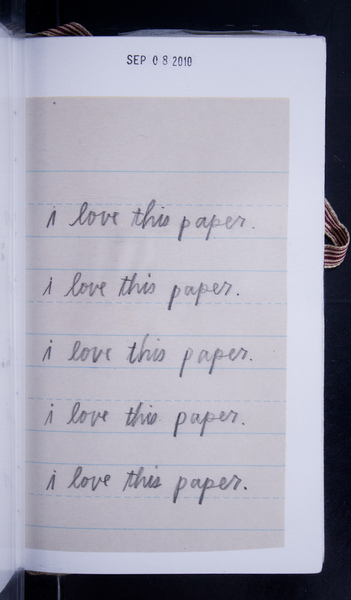 SEP 08 2010
i love this paper.
i love this paper.
i love this paper.
i love this paper.
i love this paper.